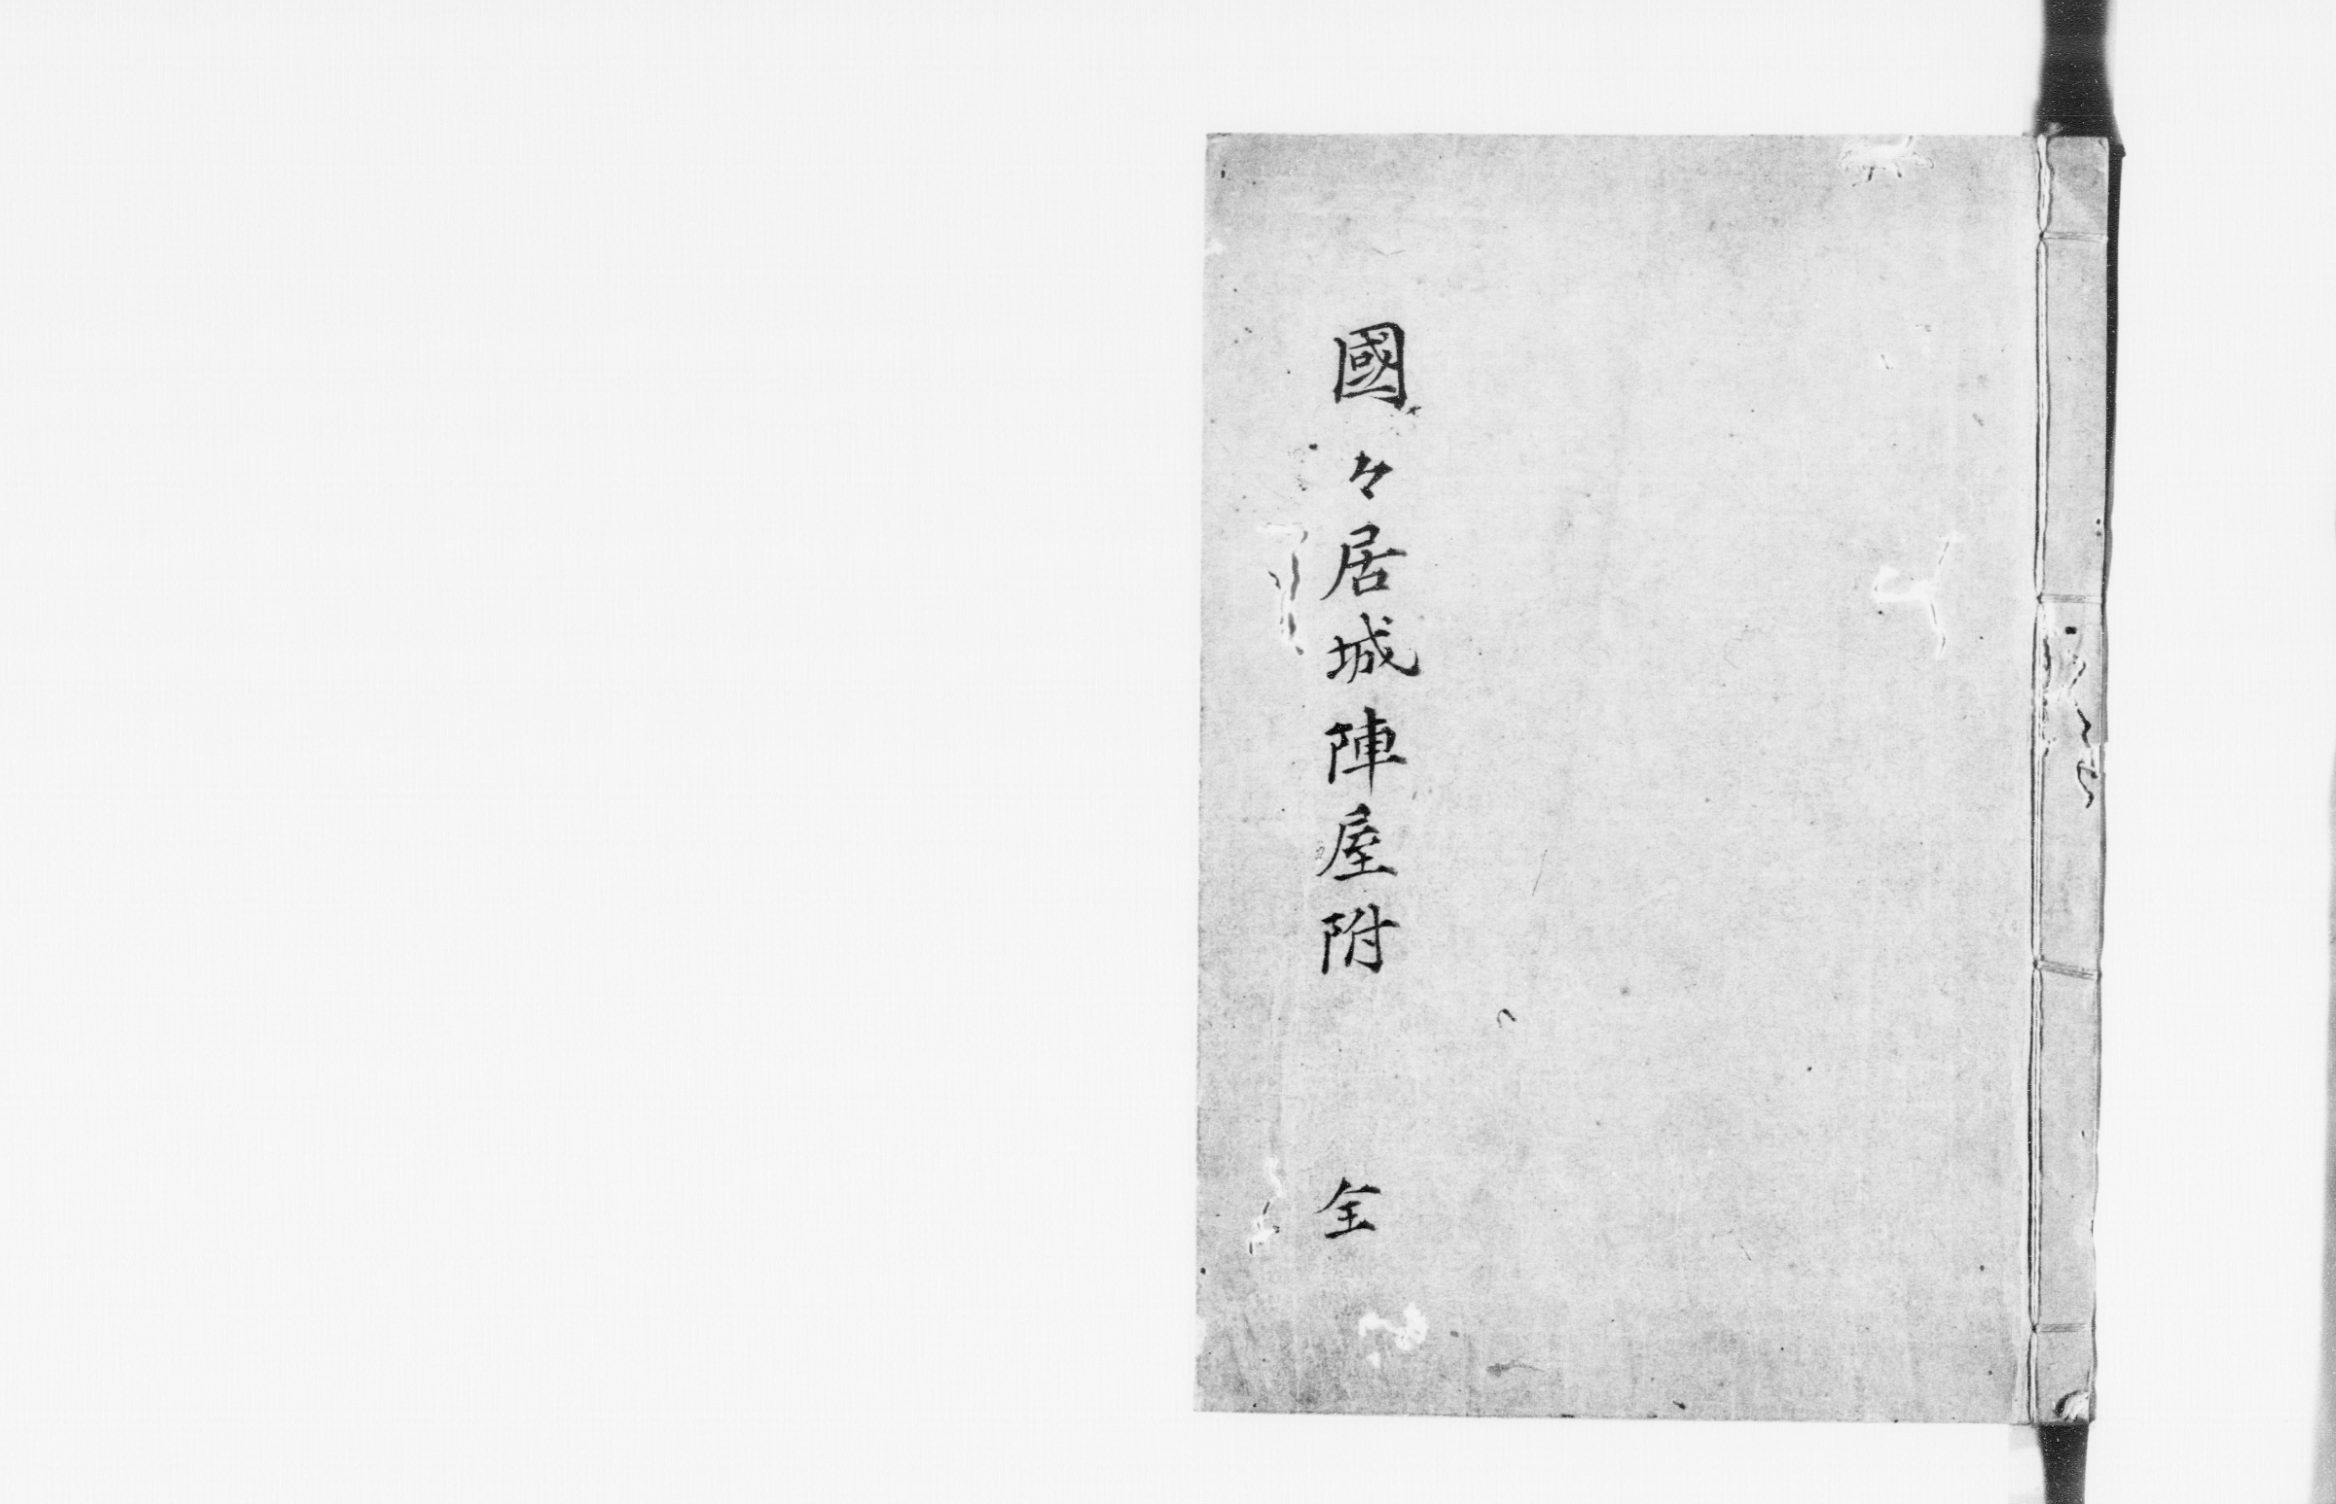 國々居城陣屋附 全